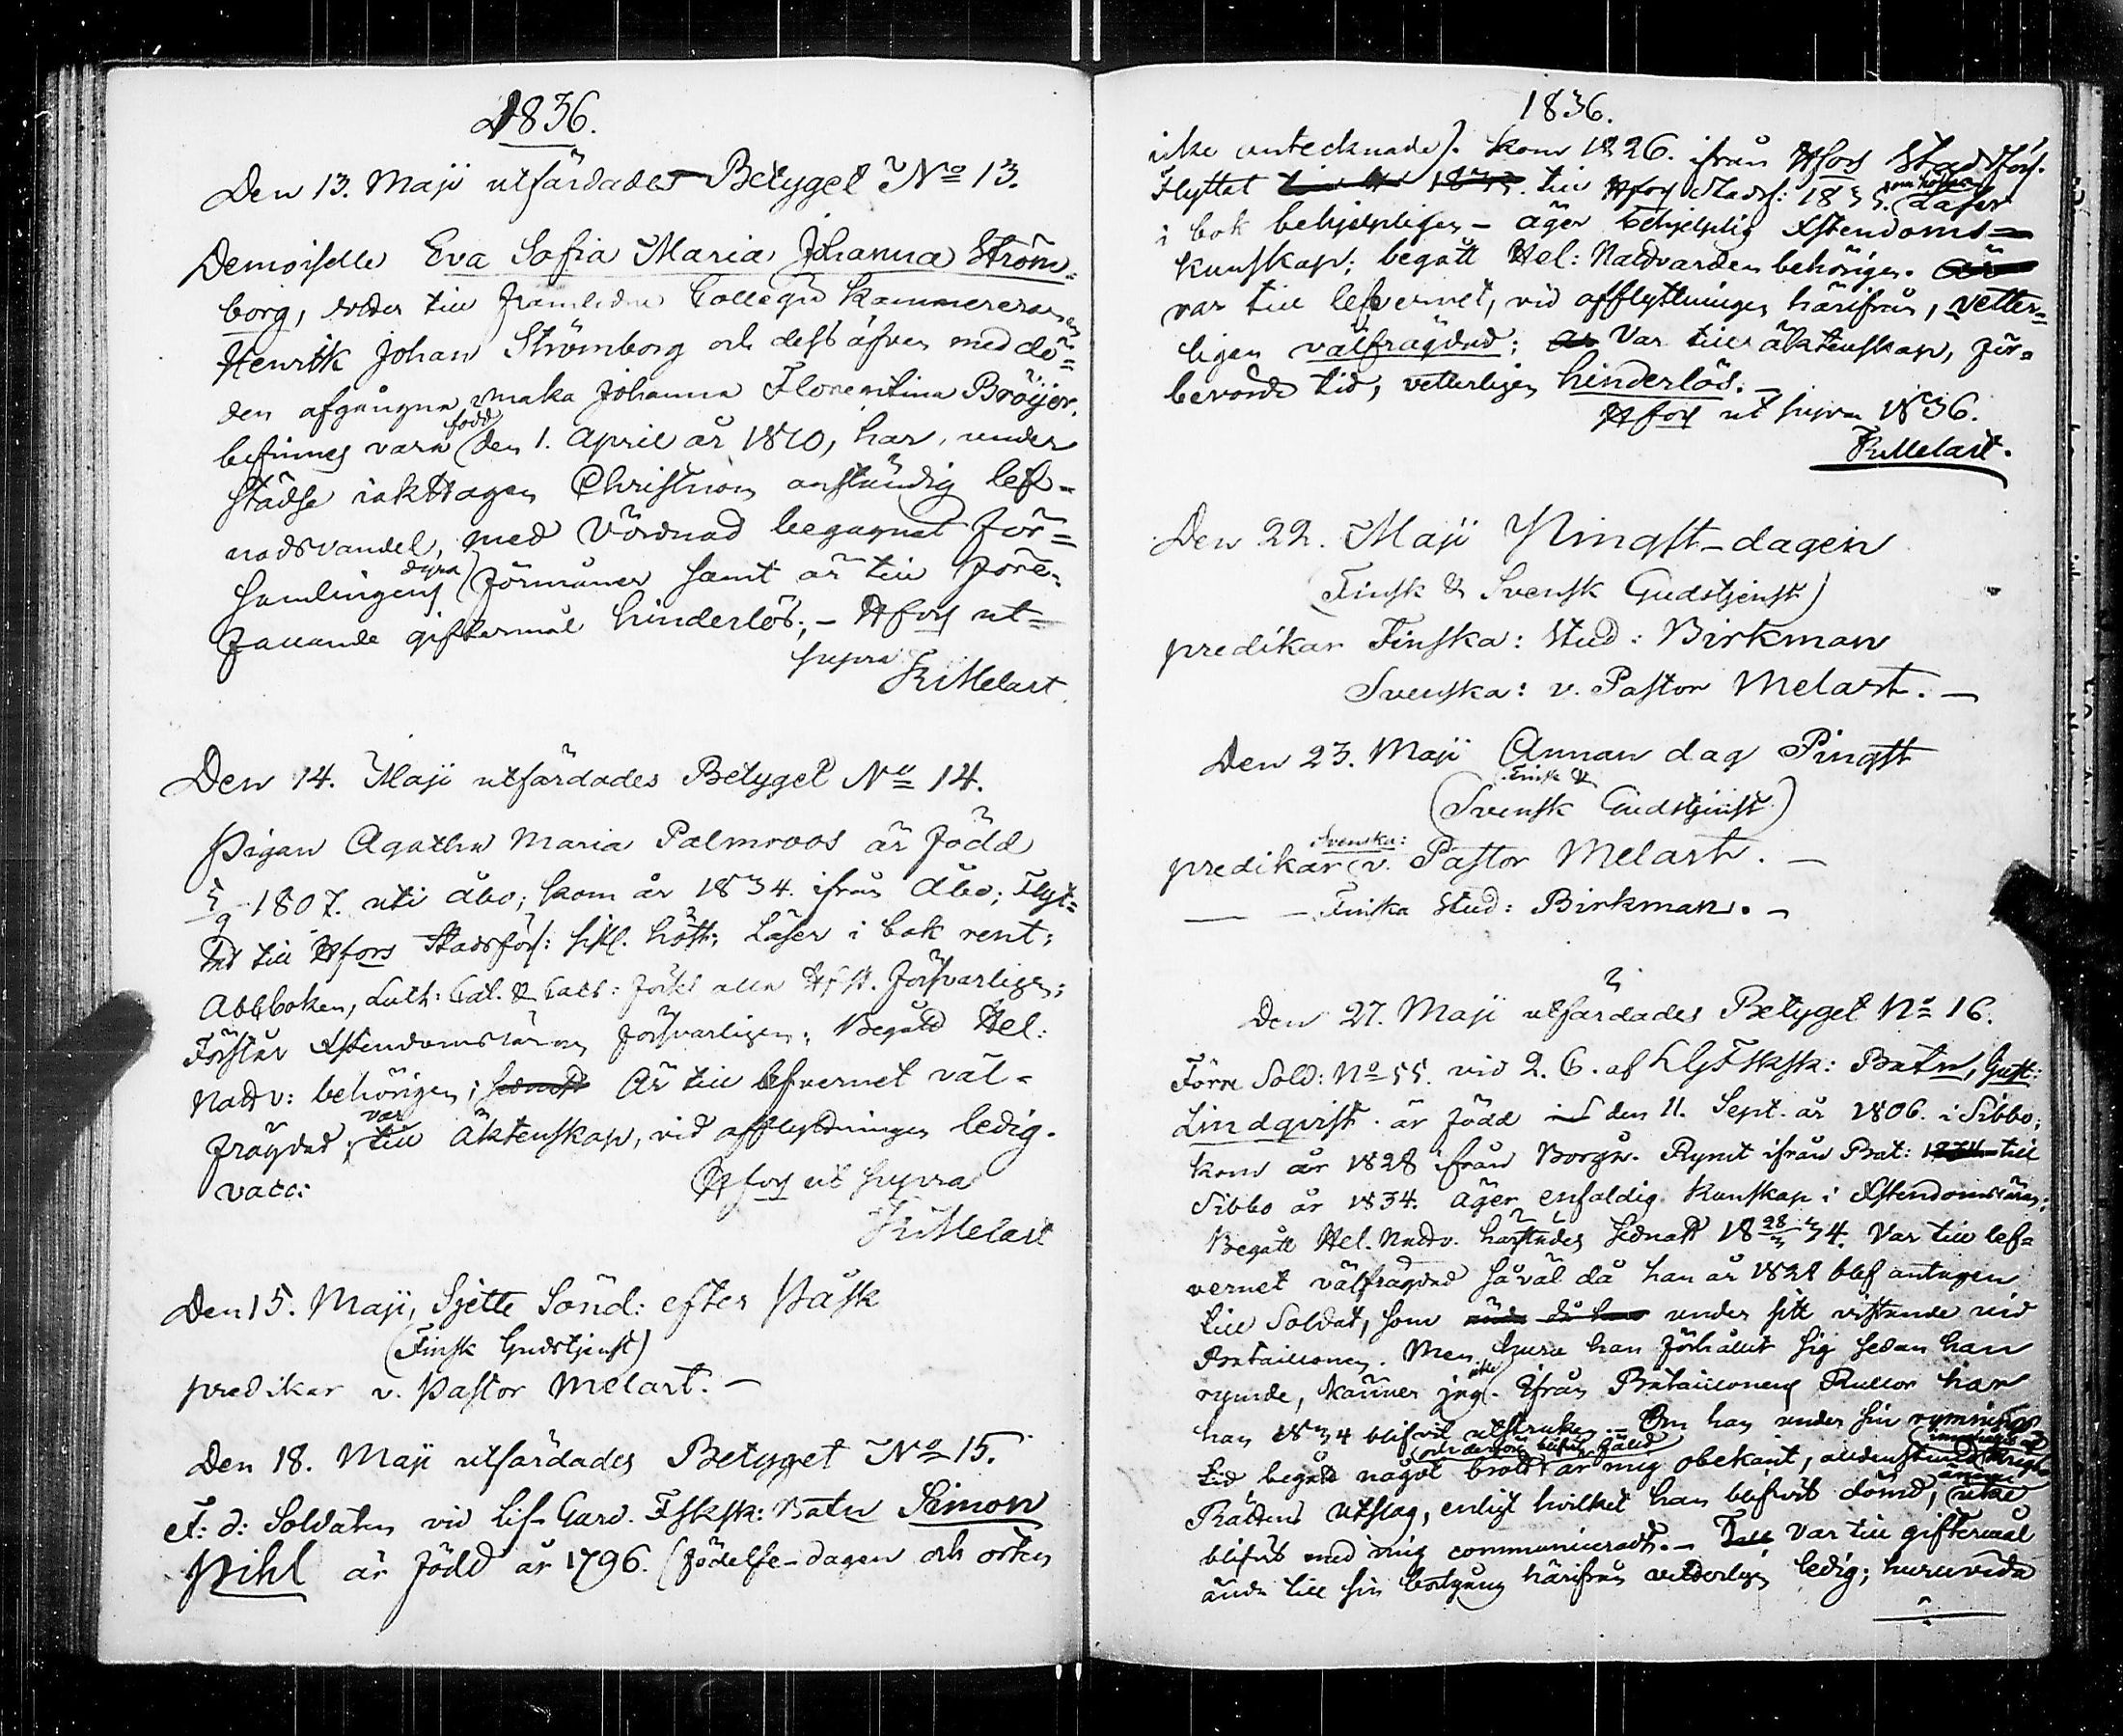 1836.
Den 13. Maji utfärdades Betyget No 13.
Demoiselle Eva Sofia Maria Johanna Ström=
borg, dotter till framledne Collegii Kammereraren
Henrik Johan Strömborg och dess äfven med dö=
den afgångna maka Johanna Florentina Bröijer,
befinnes vara född den 1. April år 1810, har, under
städse iakttagen Christnom anständig lef-
nadsvandel, med Vördnad begagnat För=
samlingens dyra förmåner samt är till före-
fallande giftermål hinderlös; - Hfors ut=
supra
FrMelart
Den 14. Maji utfärdades Betyget No 14.
Pigan Agatha Maria Palmroos är född
1807. uti Åbo; kom år 1834. ifrån Åbo; Flyt=
tat till Hfors Stadsförs: sistl. höst; Läser i bok rent;
Abbboken, Luth: Cat. & försvarligen;
Förstår Xstendomsläran försvarligen; Begått Hel:
Nattv: behörigen; sednast Är till lefvernet väl-
frägdad; var till äktenskap, vid afflyttningen ledig.
Hfors ut supra
FrMelart
Den 15. Maji, Sjette Sönd: efter Påsk
(Finsk Gudstjenst)
predikar v. Pastor Melart. -
Den 18. Maji utfärdades Betyget No 15.
F: d: Soldaten vid Lif-Gard. Fsksk: Batn Simon
Pihl är född år 1796. (födelse-dagen och orten
1836.
icke antecknade). kom 1826. ifrån Hfors Stadsförs.
Flyttat till Hfors Stadsf: 1835. Läser
i bok behjelpligen - äger behjelplig Xstendoms=
kunskap; begått Hel: Nattvarden behörigen. är
var till lefvernet, vid afflyttningen härifrån, vetter=
ligen välfrägdad; är Var till äktenskap, för=
berörde tid, vetterligen hinderlös. -
Hfors ut supra 1836.
FrMelart.
Den 22. Maji Pingst-dagen
(Finsk & Svensk Gudstjenst)
predikar Finska: Stud: Birkman
Svenska: v. Pastor Melart. -
Den 23. Maji Annan dag Pingst
(Finsk & Svensk Gudstjenst)
predikar Svenska: v. Pastor Melart. -
— - Finska Stud: Birkman. -
Den 27. Maji utfärdades Betyget No 16.
Förre Sold: No 55. vid 2. C. af LGFsksk: Batn, Gust:
Lindqvist. är född den 11. Sept. år 1806. i Sibbo;
kom år 1828 ifrån Borgå. Rymt ifrån Bat: 1834 till
Sibbo år 1834. äger enfaldig kunskap i Xstendomsläran;
Begått Hel. Nattv. härstädes sednast 18 28/3 34. Var till lef=
vernet välfrägdad såväl då han år 1828 blef antagen
till Soldat, som under sitt vistande vid
Bataillonen. Men huru han förhållit sig sedan han
rymde, känner jag icke. Ifrån Bataillonens Rullor har
han 1834 blifvit utstruken. - Om han under sin rymnings
tid begått något brott och derföre blifvit fälld är mig obekant,
Rättens Utslag, enligt hvilket han blifvit dömd, icke
blifvit med mig communiceradt. - Var till giftermål
ända till sin bortgång härifrån vetterligen ledig; huruvida